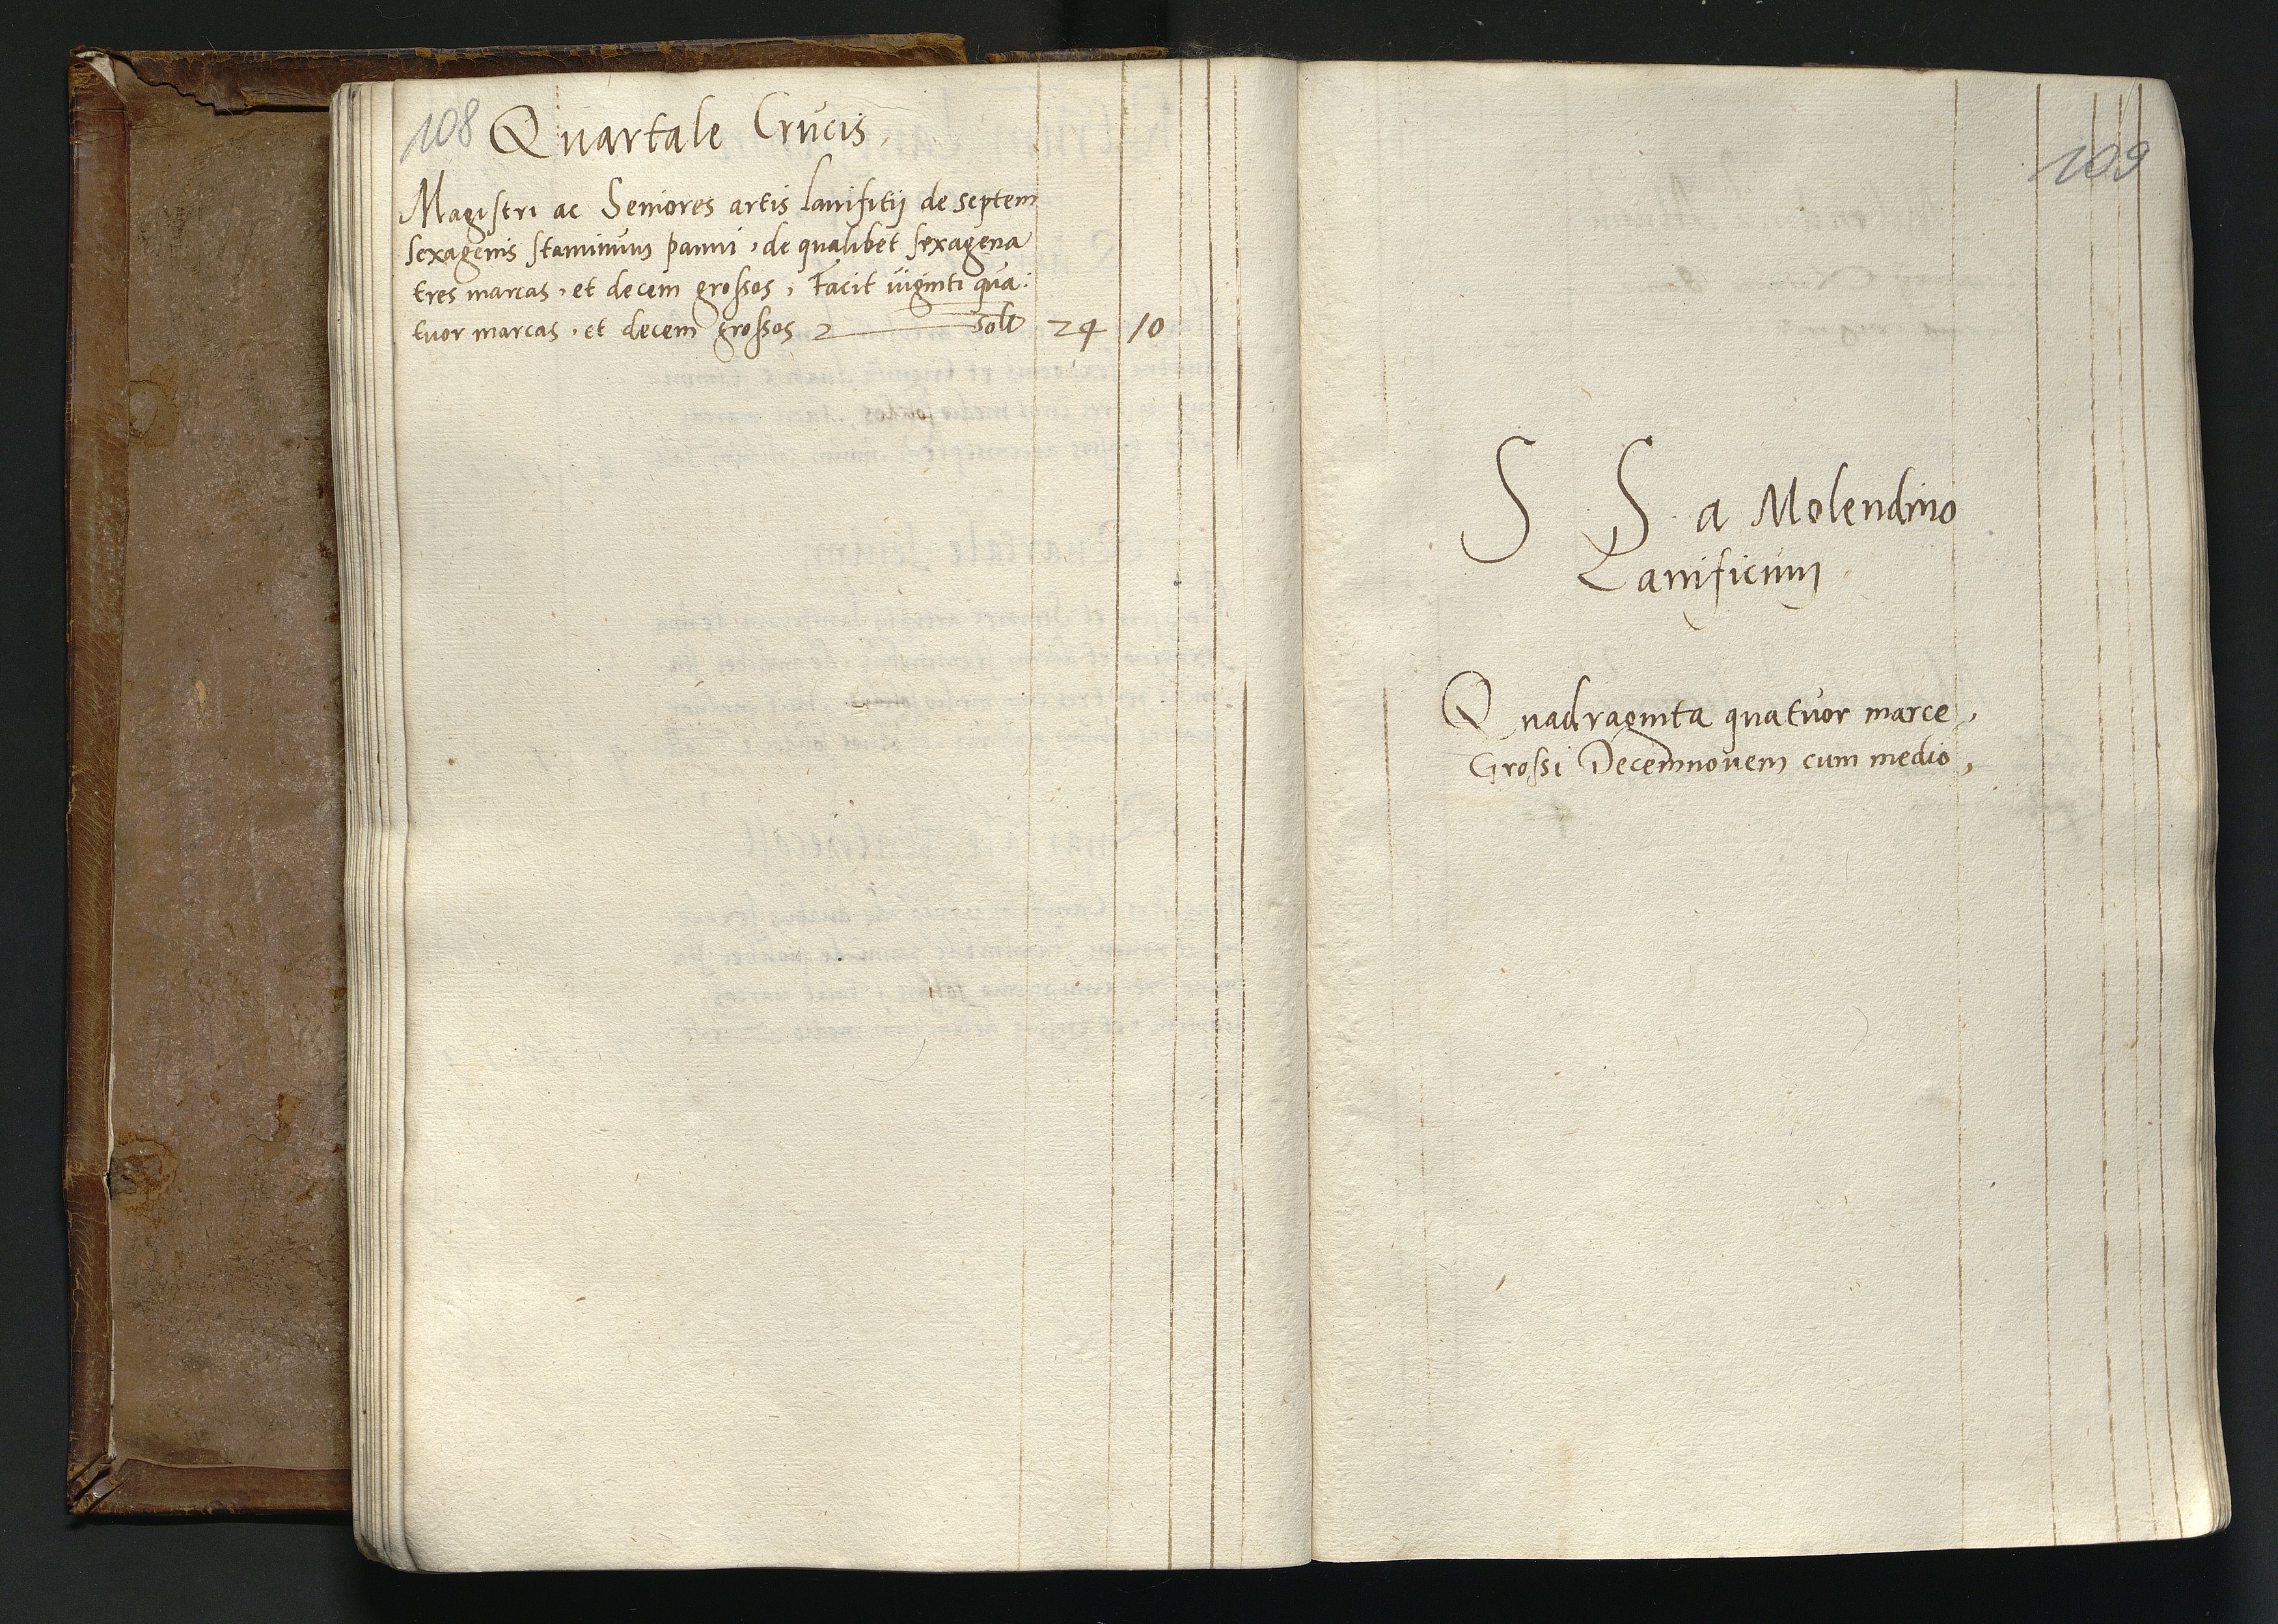 108
Quartale Crucis
Magistri ac Seniores artis lanifitij de septem
sexagenis staminum panni, de qualibet sexagena
tres marcas, et decem grossos, Facit viginti qua:
tuor marcas, et decem grossos 2 solt 24 10
109
S S a Molendino
Lanificum
Quadraginta quatuor marce,
Grossi Decemnovem cum medio,